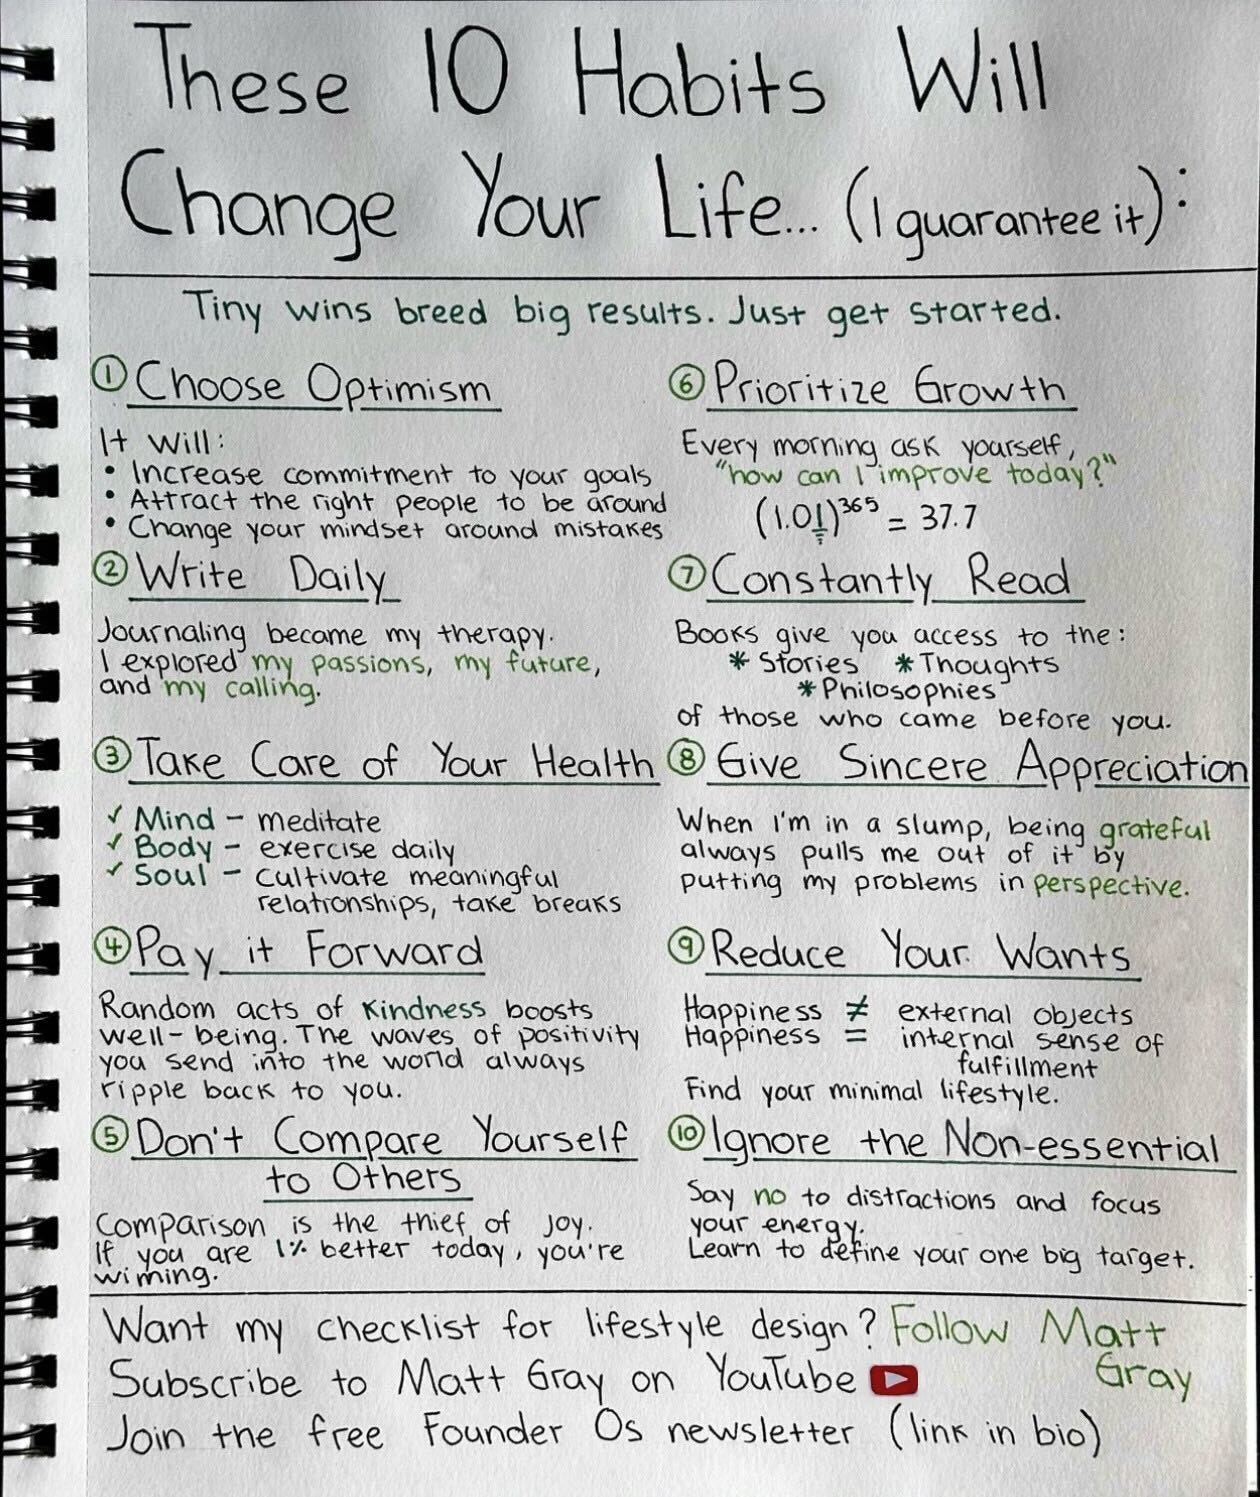 These 10 Habits Will
Change Your Life... (I guarantee it):
Tiny wins breed big results. Just get started.
1 Choose Optimism
It Will:
• Increase commitment to your goals
• Attract the right people to be around
• Change your mindset around mistakes
2 Write Daily
Journaling became my therapy.
I explored my passions, my future,
and my calling.
3 Take Care of Your Health
✓ Mind - meditate
✓ Body - exercise daily
✓ Soul - cultivate meaningful
relationships, take breaks
4 Pay it Forward
Random acts of kindness boosts
well-being. The waves of positivity
you send into the world always
ripple back to you.
5 Don't Compare Yourself
to Others
Comparison is the thief of joy.
If you are 1% better today, you're
winning.
6 Prioritize Growth
Every morning ask yourself,
"how can I improve today?"
(1.01)^365 = 37.7
7 Constantly Read
Books give you access to the:
* Stories * Thoughts
* Philosophies
of those who came before you.
8 Give Sincere Appreciation
When I'm in a slump, being grateful
always pulls me out of it by
putting my problems in perspective.
9 Reduce Your Wants
Happiness ≠ external objects
Happiness = internal sense of
fulfillment
Find your minimal lifestyle.
10 Ignore the Non-essential
Say no to distractions and focus
your energy.
Learn to define your one big target.
Want my checklist for lifestyle design? Follow Matt
Gray
Subscribe to Matt Gray on YouTube
Join the free Founder Os newsletter (link in bio)